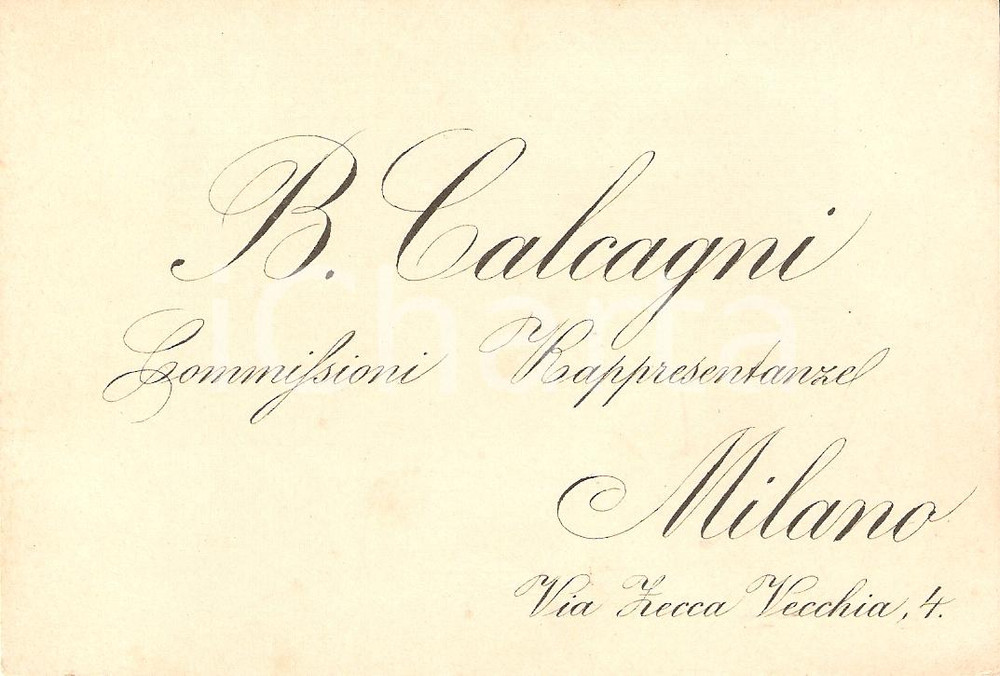 B. Calcagni
iCharta
Commiſsioni Rappresentanze
Milano
Via Zecca Vecchia, 4.